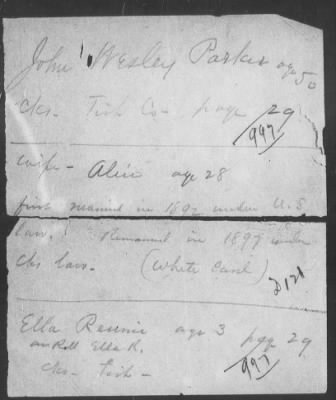 John Wesley Parker age 50
cks - Tish Co - page 29
997
wife - Alice age 28
first married in 1897 under U.S
law. Remarried in 1897 under
cks law. (White Card)
D121
Ella Rennie age 3 pge 29
on Roll Ella R.
997
cks - Tish -